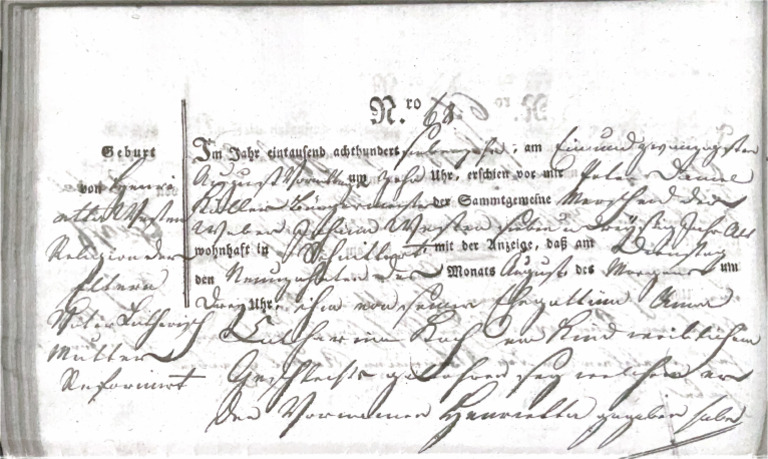 N.ro 68.
Geburt
von Henri
etta Westen
Religion der
Eltern
Vater Lutherisch
Mutter
Reformirt
Im Jahr eintausend achthundert siebenzehn, am Ein und zwanzigsten
August Vormittag um zehn Uhr, erschien vor mir Peter Daniel
Bürgermeister der Sammtgemeine Merscheid der
Weber Johann Westen sieben u Dreyßig Jahr Alt
wohnhaft in mit der Anzeige, daß am Dienstag
den Neunzehnten des Monats August des Morgens um
Drey Uhr, ihm von seiner Ehegattinn Anna
Catharina Koch ein Kind weiblichen
Geschlechts gebohren sey welchem er
den Vornamen Henrietta gegeben habe